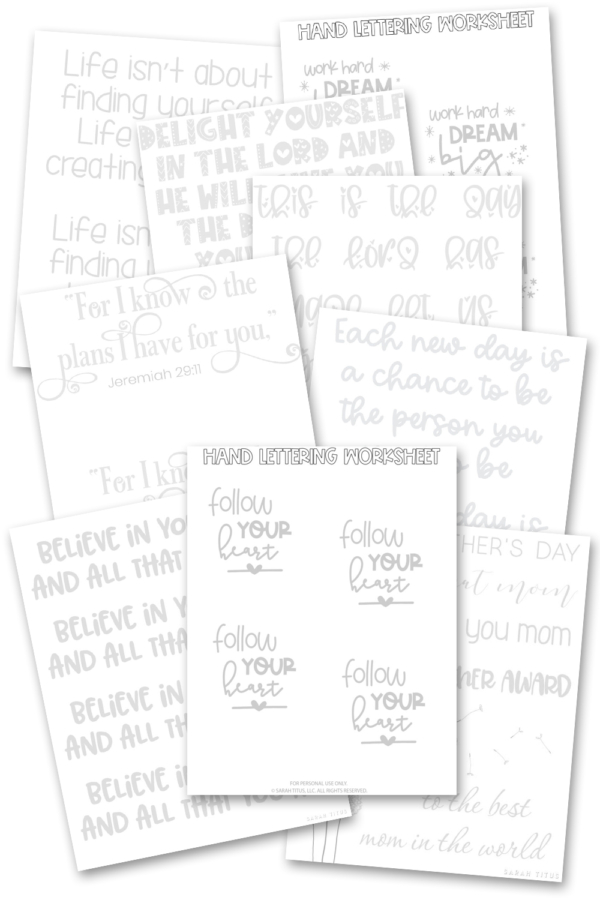 Life isn't about
finding yourself
Life
creating
Life isn
finding
HAND LETTERING WORKSHEET
work hard
DREAM
work hard
DREAM
big
DELIGHT YOURSELF
IN THE LORD AND
HE WILL YOU
THE D
YOU
this is the day
the lord has
made let us
"For I know the
plans I have for you,"
Jeremiah 29:11
"For I k
Each new day is
a chance to be
the person you
to be
day is
BELIEVE IN YOU
AND ALL THAT
BELIEVE IN Y
AND ALL THA
BELIEVE IN
AND ALL THA
BELIEVE IN
AND ALL THAT YOU
SARAH TITUS
HAND LETTERING WORKSHEET
follow
YOUR
heart
follow
YOUR
heart
follow
YOUR
heart
follow
YOUR
heart
FOR PERSONAL USE ONLY
© SARAH TITUS, LLC. ALL RIGHTS RESERVED.
HER'S DAY
t mom
YOU MOM
HER AWARD
to the best
mom in the world
SARAH TITUS